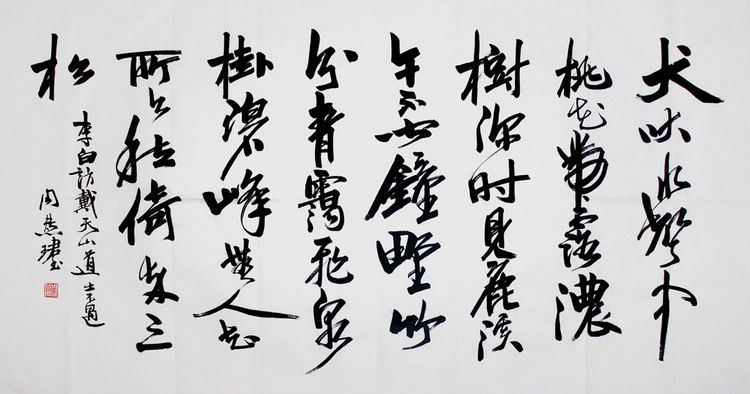 犬吠水聲中
桃花帶露濃
樹深时見鹿溪
午不聞鐘野竹
分青靄飛泉
掛碧峰無人知
所去愁倚两三
松
李白訪戴天山道士不遇
周燕